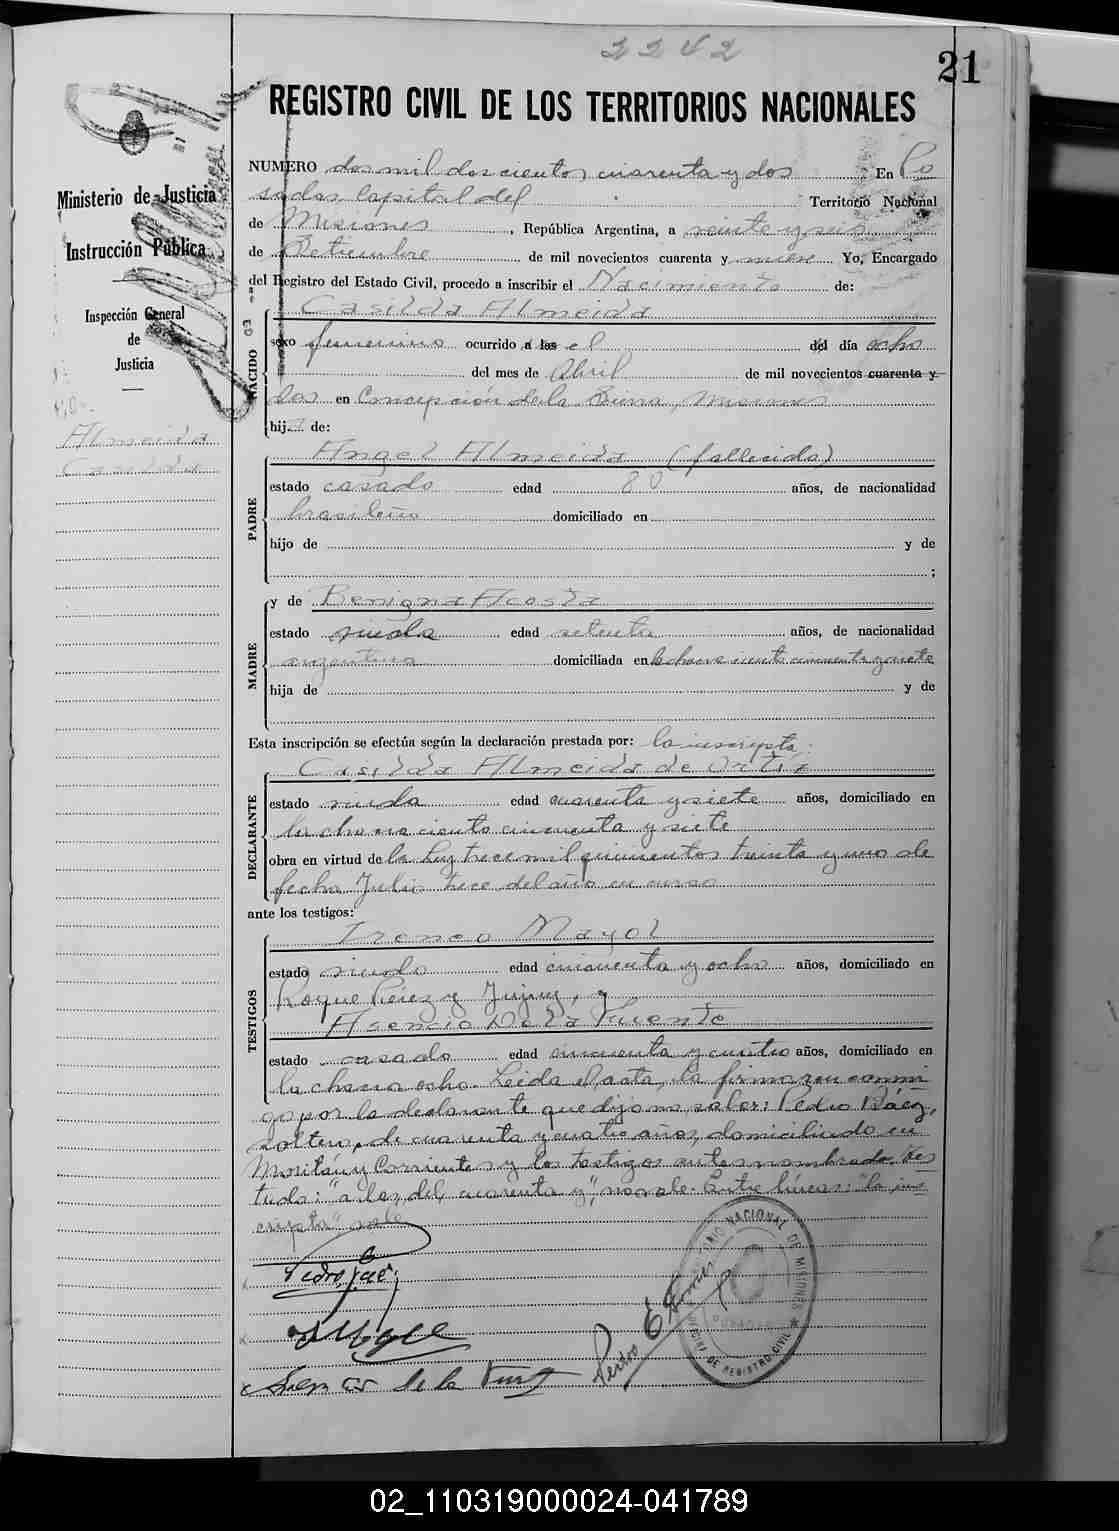 2242
21
REGISTRO CIVIL DE LOS TERRITORIOS NACIONALES
Ministerio de Justicia
Instrucción Pública
Inspección General
de
Justicia
Almeida
Casilda
NUMERO dos mil doscientos cuarenta y dos En Po
sadas Capital del Territorio Nacional
de Misiones, República Argentina, a veinte y seis
de Setiembre de mil novecientos cuarenta y nueve Yo, Encargado
del Registro del Estado Civil, procedo a inscribir el Nacimiento de:
NACIDO
Casilda Almeida
sexo femenino ocurrido a las el del día ocho
del mes de Abril de mil novecientos cuarenta y
dos en Concepción de la Sierra, Misiones
hija de:
PADRE
Angel Almeida (fallecido)
estado casado edad 80 años, de nacionalidad
brasileño domiciliado en
hijo de y de
;
MADRE
y de Benigna Acosta
estado viuda edad setenta años, de nacionalidad
argentina domiciliada en la chacra ciento cincuenta y siete
hija de y de
Esta inscripción se efectúa según la declaración prestada por: la inscripta:
DECLARANTE
Casilda Almeida de Ortiz
estado viuda edad cuarenta y siete años, domiciliado en
la chacra ciento cincuenta y siete
obra en virtud de la Ley trece mil quinientos treinta y uno de
fecha Julio trece del año en curso
ante los testigos:
TESTIGOS
Ireneo Mayol
estado viudo edad cincuenta y ocho años, domiciliado en
Roque Pérez y Jujuy, y
Asencio De la Puente
estado casado edad cincuenta y cuatro años, domiciliado en
la chacra ocho. Leida el acta, la firmaron conmi
go por la declarante que dijo no saber: Pedro Báez,
soltero, de cuarenta y cuatro años, domiciliado en
Moritán y Corrientes y los testigos antes nombrados. Tes
tado: "a las, del, cuarenta y", no vale. Entre líneas: "la ins
cripta" vale
Pedro Báez
de la Puente
Pedro E
TERRITORIO NACIONAL DE MISIONES
POSADAS
OFICINA DE REGISTRO CIVIL
02_110319000024-041789